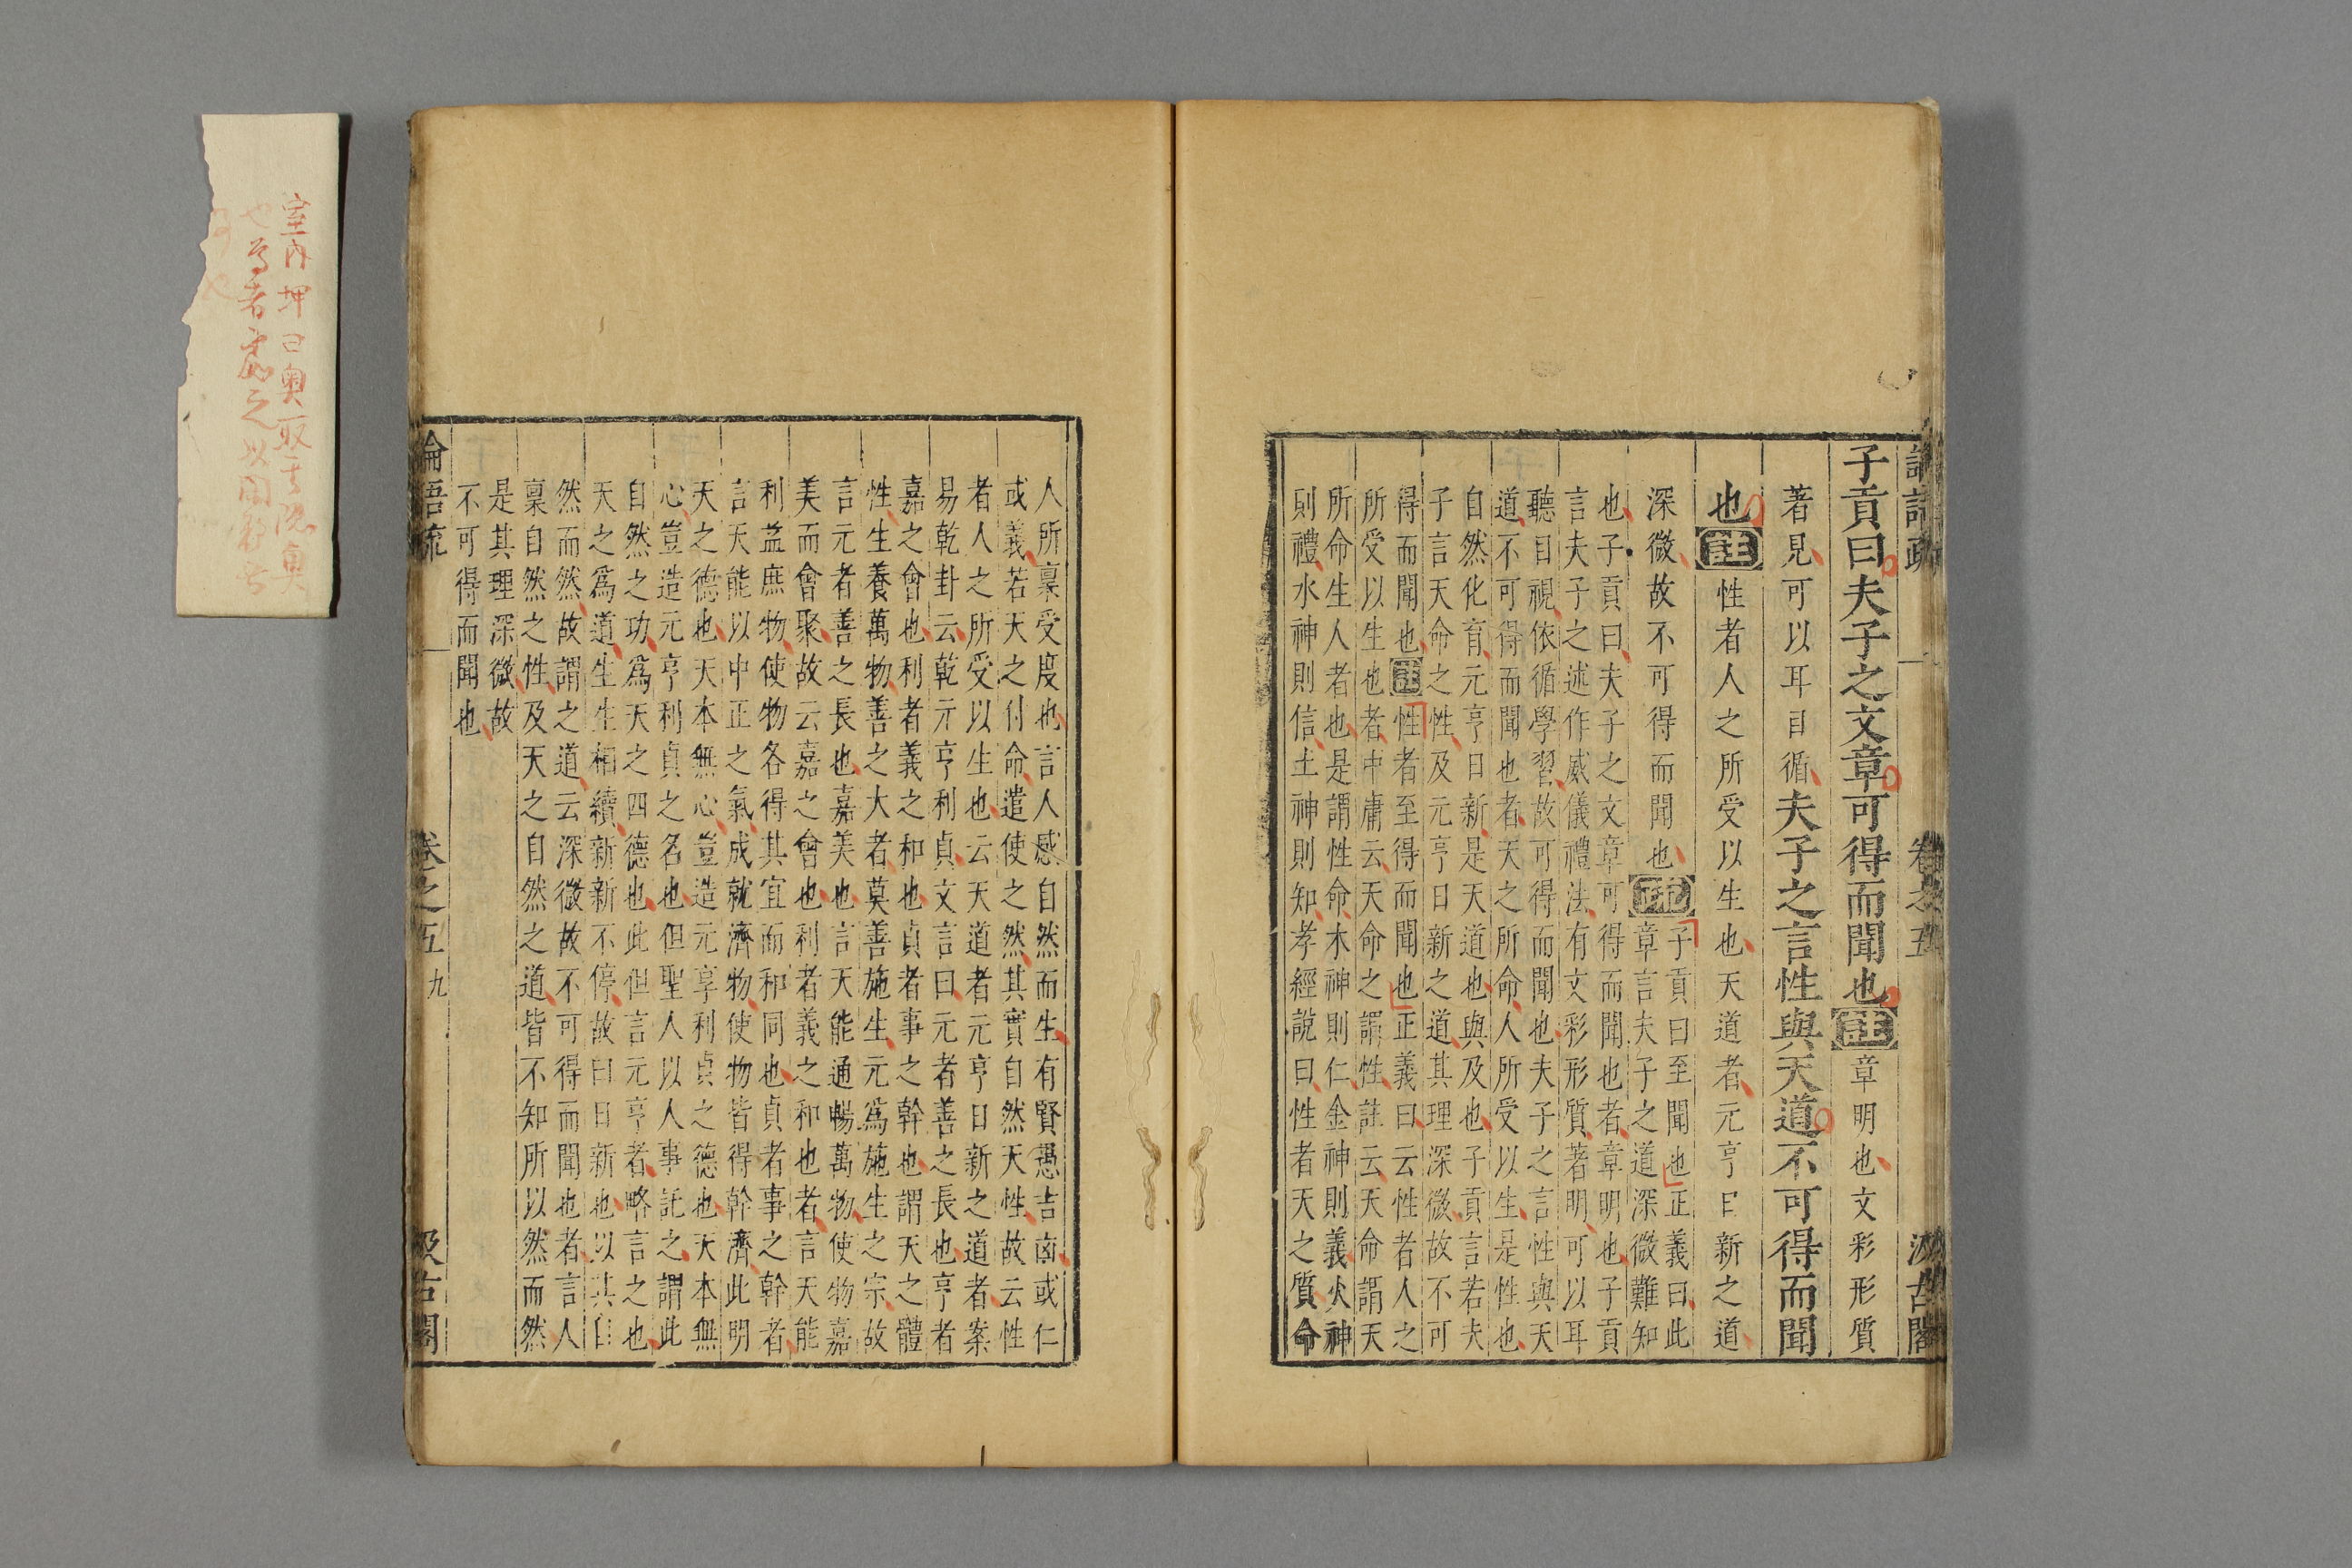 論語疏
卷之五
汲古閣
子貢曰夫子之文章可得而聞也註章明也文彩形質
著見可以耳目循夫子之言性與天道不可得而聞
也註性者人之所受以生也天道者元亨日新之道
深微故不可得而聞也疏
子貢曰至聞也正義曰此
章言夫子之道深微難知
也子貢曰夫子之文章可得而聞也者章明也子貢
言夫子之述作威儀禮法有文彩形質著明可以耳
聽目視依循學習故可得而聞也夫子之言性與天
道不可得而聞也者天之所命人所受以生是性也
自然化育元亨日新是天道也與及也子貢言若夫
子言天命之性及元亨日新之道其理深微故不可
得而聞也註性者至得而聞也正義曰云性者人之
所受以生也者中庸云天命之謂性註云天命謂天
所命生人者也是謂性命木神則仁金神則義火神
則禮水神則信土神則知孝經說曰性者天之質命
人所稟受度也言人感自然而生有賢愚吉凶或仁
或義若天之付命遣使之然其實自然天性故云性
者人之所受以生也云天道者元亨日新之道者案
易乾卦云乾元亨利貞文言曰元者善之長也亨者
嘉之會也利者義之和也貞者事之幹也謂天之體
性生養萬物善之大者莫善施生元爲施生之宗故
言元者善之長也嘉美也言天能通暢萬物使物嘉
美而會聚故云嘉之會也利者義之和也者言天能
利益庶物使物各得其宜而和同也貞者事之幹者
言天能以中正之氣成就濟物使物皆得幹濟此明
天之德也天本無心豈造元亨利貞之德也天本無
心豈造元亨利貞之名也但聖人以人事託之謂此
自然之功爲天之四德也此但言元亨者略言之也
天之爲道生生相續新新不停故曰日新也以其自
然而然故謂之道云深微故不可得而聞也者言人
稟自然之性及天之自然之道皆不知所以然而然
是其理深微故
不可得而聞也
論語疏
卷之五
九
汲古閣